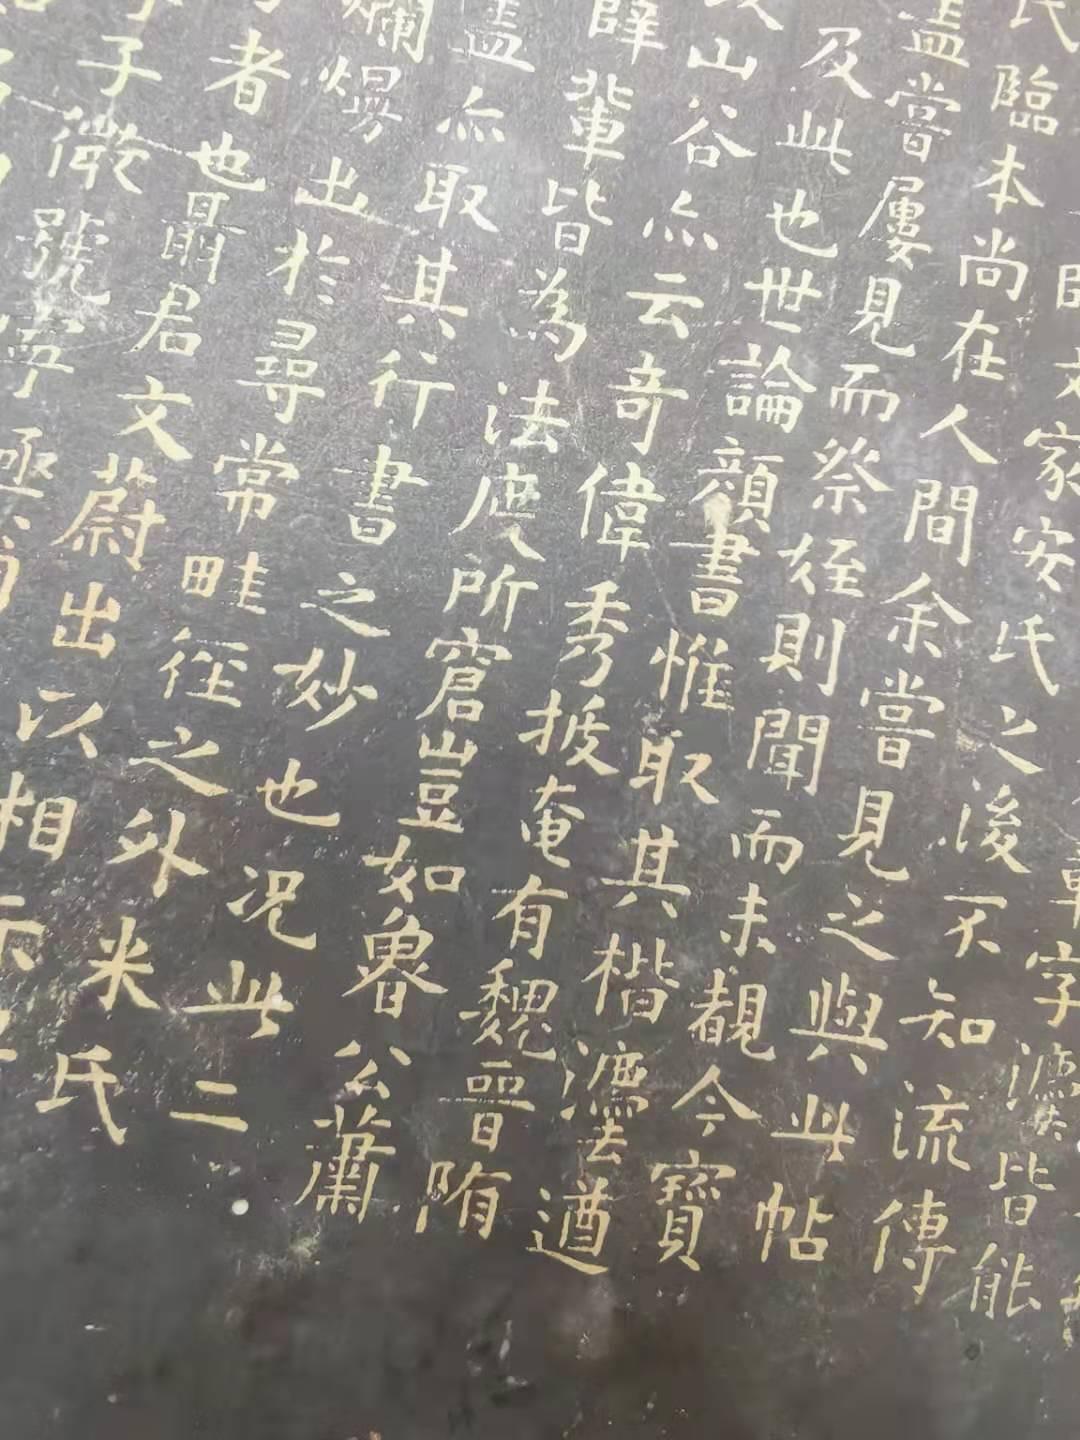 字灋皆能
文家安氏之後不知流傳
氏臨本尚在人間余嘗見之與此帖
蓋嘗屢見而祭姪則聞而未覩今寶
及此也世論顏書惟取其楷灋遒
山谷亦云奇偉秀拔奄有魏晉隋
薛輩皆為法度所窘豈如魯公蕭
蓋亦取其行書之妙也況此二
爛熳出於尋常畦徑之外米氏
者也聶君文蔚出以相示
子徵號